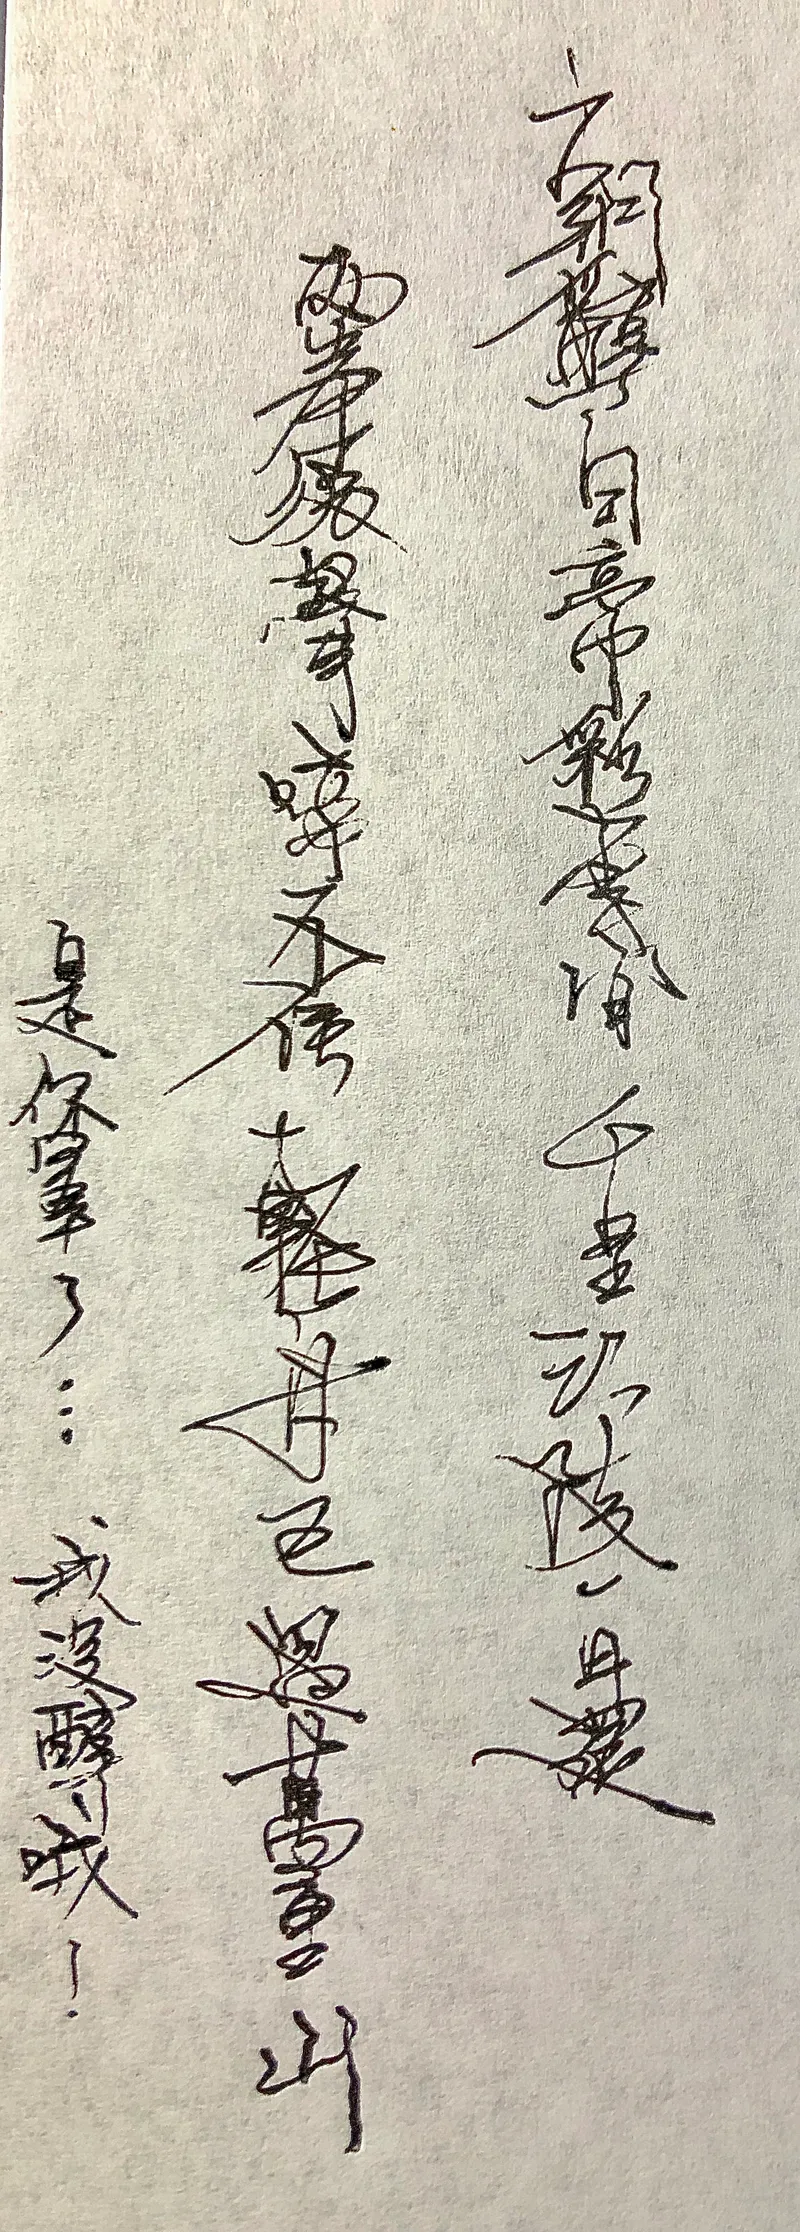 朝辭白帝彩雲間 千里江陵一日還
兩岸猿聲啼不住 輕舟已過萬重山
是你暈了… 我沒醉哦！